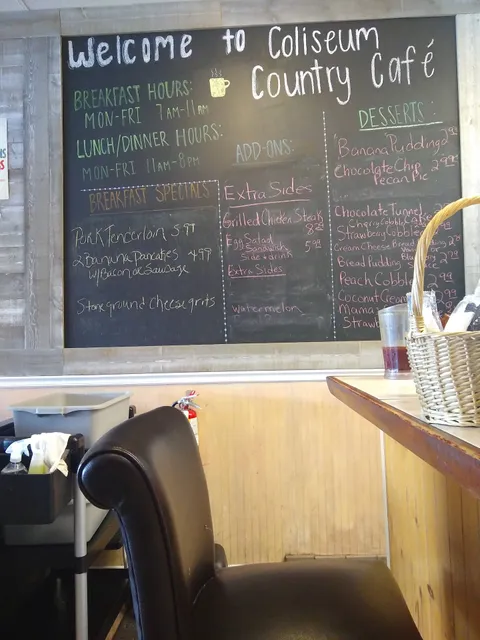 Welcome to Coliseum
Country Café
BREAKFAST HOURS:
MON-FRI 7AM-11AM
LUNCH/DINNER HOURS:
MON-FRI 11AM-8PM
BREAKFAST SPECIALS
Pork Tenderloin 5.99
2 Banana Pancakes 4.99
w/Bacon or Sausage
Stoneground Cheese grits
ADD-ONS:
Extra Sides
Grilled Chicken Steak
Egg Salad
Sandwich 5.99
Side & drink
Extra Sides
watermelon
DESSERTS:
Banana Pudding
Chocolate Chip
Pecan Pie
Chocolate Tunnel
Cherry Cobbler
Strawberry Cobbler
Cream Cheese Bread
Bread Pudding
Peach Cobbler
Coconut Cream
Mama
Straw